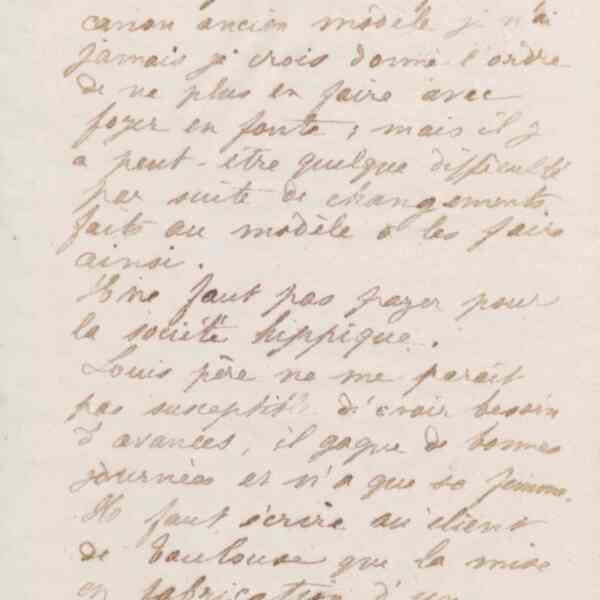 canon ancien modèle je n'ai
jamais je crois donné l'ordre
de ne plus en faire avec
foyer en fonte ; mais il y
a peut-être quelque difficulté
par suite de changements
faits au modèle à les faire
ainsi.
Il ne faut pas payer pour
la société hippique.
Louis père ne me paraît
pas susceptible d'avoir besoin
d'avances, il gagne de bonnes
journées et n'a que sa femme.
Il faut écrire au client
de Toulouse que la mise
en fabrication d'un